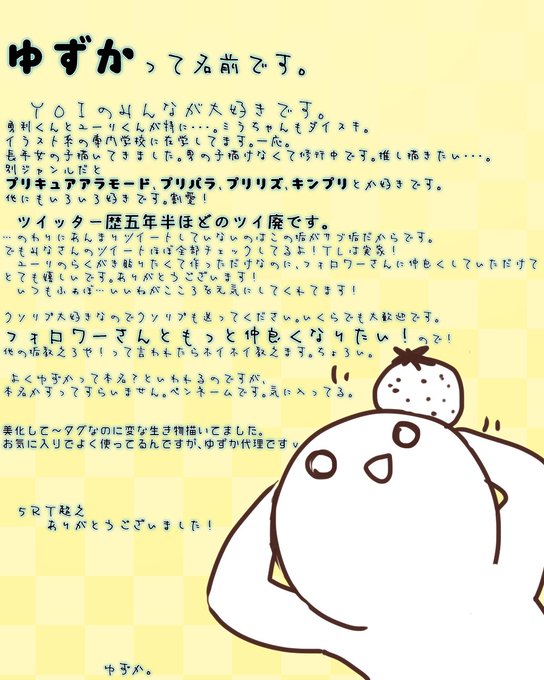 ゆずかって名前です。
YOIのみんなが大好きです。
勇利くんとユーリくんが特に・・・。ミラちゃんもダイスキ。
イラスト系の専門学校に在学してます。一応。
長年女の子描いてきました。男の子描けなくて修行中です。推し描きたい・・・。
別ジャンルだと
プリキュアアラモード、プリパラ、プリリズ、キンプリとか好きです。
他にもいろいろ好きです。割愛！
ツイッター歴五年半ほどのツイ廃です。
…のわりにあんまりツイートしていないのはこの垢がサブ垢だからです。
でもみなさんのツイートほぼ全部チェックしてるよ！TLは実家！
ユーリのらくがき貼りたくて作っただけなのに、フォロワーさんに仲良くしていただけて
とても嬉しいです。ありがとうございます！
いつもふぁぼ…いいねがこころを元気にしてくれてます！
クソリプ大好きなのでクソリプも送ってください。いくらでも大歓迎です。
フォロワーさんともっと仲良くなりたい！ので！
他の垢教えろや！って言われたらホイホイ教えます。ちょろい。
よくゆずかって本名？といわれるのですが、
本名かすってすらいません。ペンネームです。気に入ってる。
美化して〜タグなのに変な生き物描いてました。
お気に入りでよく使ってるんですが、ゆずか代理ですv
5RT超え
ありがとうございました！
ゆずか。